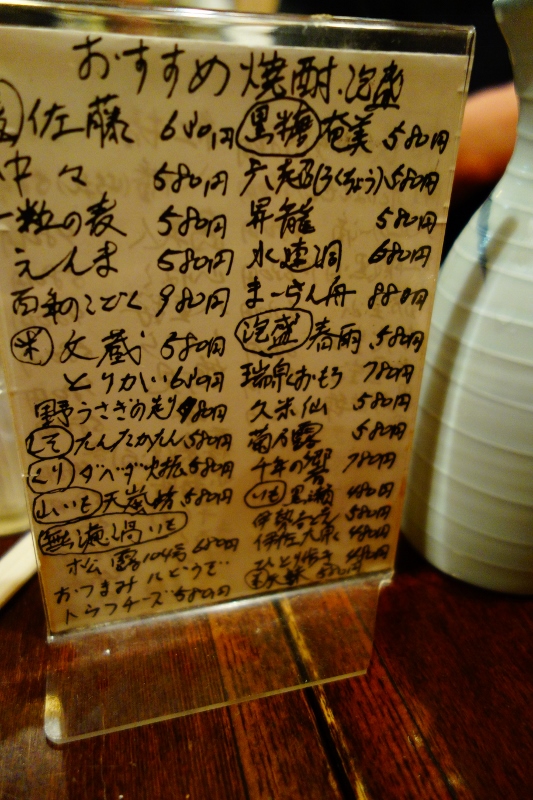 おすすめ焼酎.泡盛
佐藤 680円
中々 580円
一粒の麦 580円
えんま 580円
百年の 980円
米 文蔵 580円
とりかい 680円
野うさぎの走り 980円
しそ たんたかたん 580円
くり ダバダ火振 580円
山いも 天嵐坊 580円
無濾過いも
松露104号 680円
おつまみにどうぞ
トウフチーズ 580円
黒糖 奄美 580円
六調(ろくちょう) 580円
昇龍 580円
水連洞 680円
まーらん舟 880円
泡盛 春雨 580円
瑞泉くおもろ 780円
久米仙 580円
菊乃露 580円
千年の響 780円
いも 黒瀬 480円
伊勢吉どん 580円
伊佐大泉 480円
ひとり歩き 480円
580円